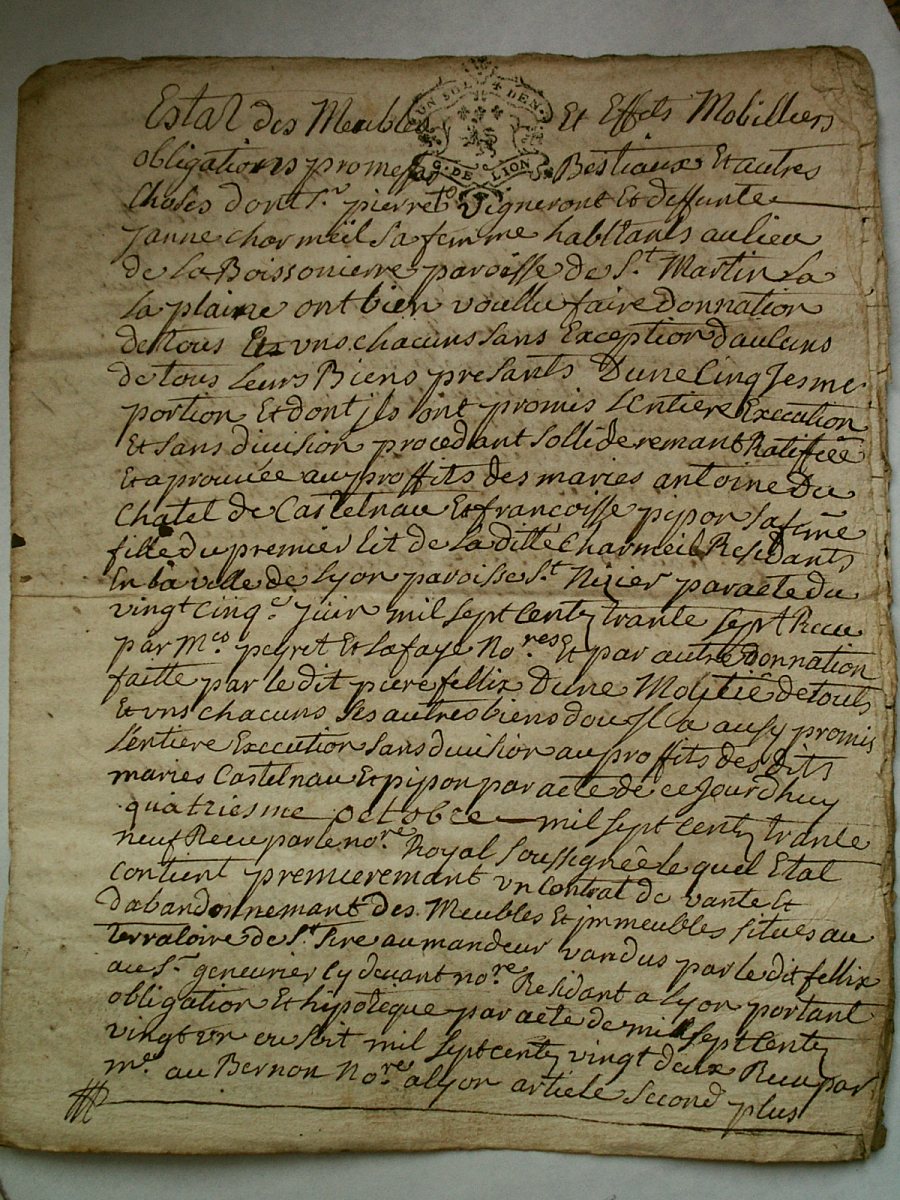 UN SOL * DEN
G. DE LION
Estat des Meubles Et Effets Mobilliers
obligations promesses Bestiaux Et autres
Choses dont Sr. pierre Vigneront Et deffunte
Janne charmeil sa femme habitants au lieu
de La Boissonierre paroisse de St. Martin La
La plaine ont bien voullu faire donnation
de tous Et uns chacuns sans Exception daucuns
de tous Leurs Biens presants Dune Cinq Jesme
portion Et dont jls ont promis Lentiere Execution
Et sans division procedant sollideremant Ratiffiée
Et aprouvée au proffits des maries antoine Du
Chatel de Castelnau Et francoisse pipon sa feme
fille du premier Lit de La ditte Charmeil Residants
En La ville de Lyon paroisse St. Nizier par acte du
vingt cinqe. juin mil sept centz trante sept Receu
par Mes peyret Et Lafaye Nores Et par autre donnation
faitte par le dit piere fellix Dune Moitié de touts
Et uns chacuns ses autres biens dou Jl a ausy promis
Lentiere Execution sans division au proffits des dits
maries Castelnau Et pipon par acte de ce Jourdhuy
quatriesme octobre mil sept centz trante
neuf Receu par le nore. Royal Soussignée le quel Etat
contient premieremant un Contrat de vante Et
dabandonnemant des Meubles Et jmmeubles situes au
terratoire de St. sire au mandeur vandus par le dit fellix
au Sr. genevrier Cy devant nore Residant a Lyon portant
obligation Et hipoteque par acte de mil sept centz
vingt un ou soit mil sept centz vingt deux Receu par
me. au Bernon Nore. a Lyon article Second plus